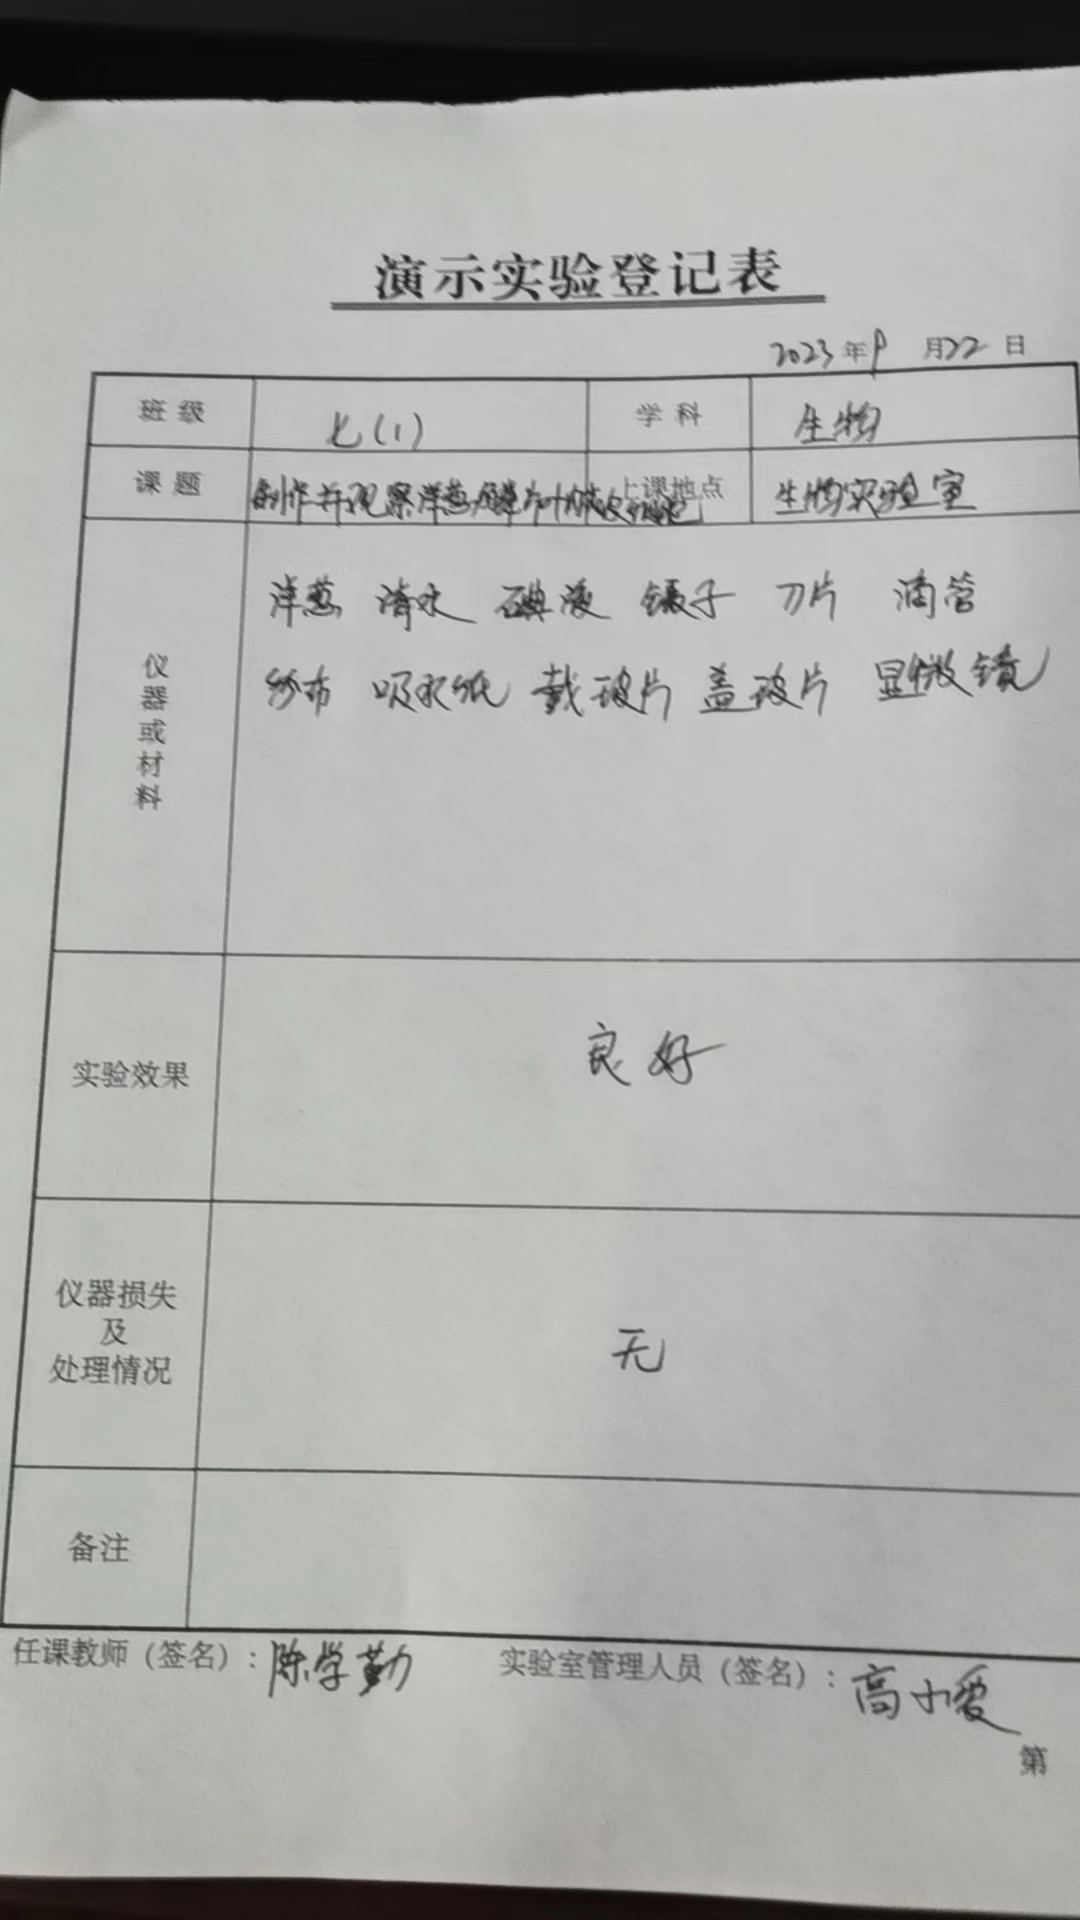 演示实验登记表
2023年9月22日
班级 七(1) 学科 生物
课题 制作并观察洋葱鳞片叶内表皮细胞 上课地点 生物实验室
仪器或材料
洋葱 清水 碘液 镊子 刀片 滴管
纱布 吸水纸 载玻片 盖玻片 显微镜
实验效果 良好
仪器损失
及
处理情况
无
备注
任课教师（签名）：陈学勤 实验室管理人员（签名）：高小爱
第